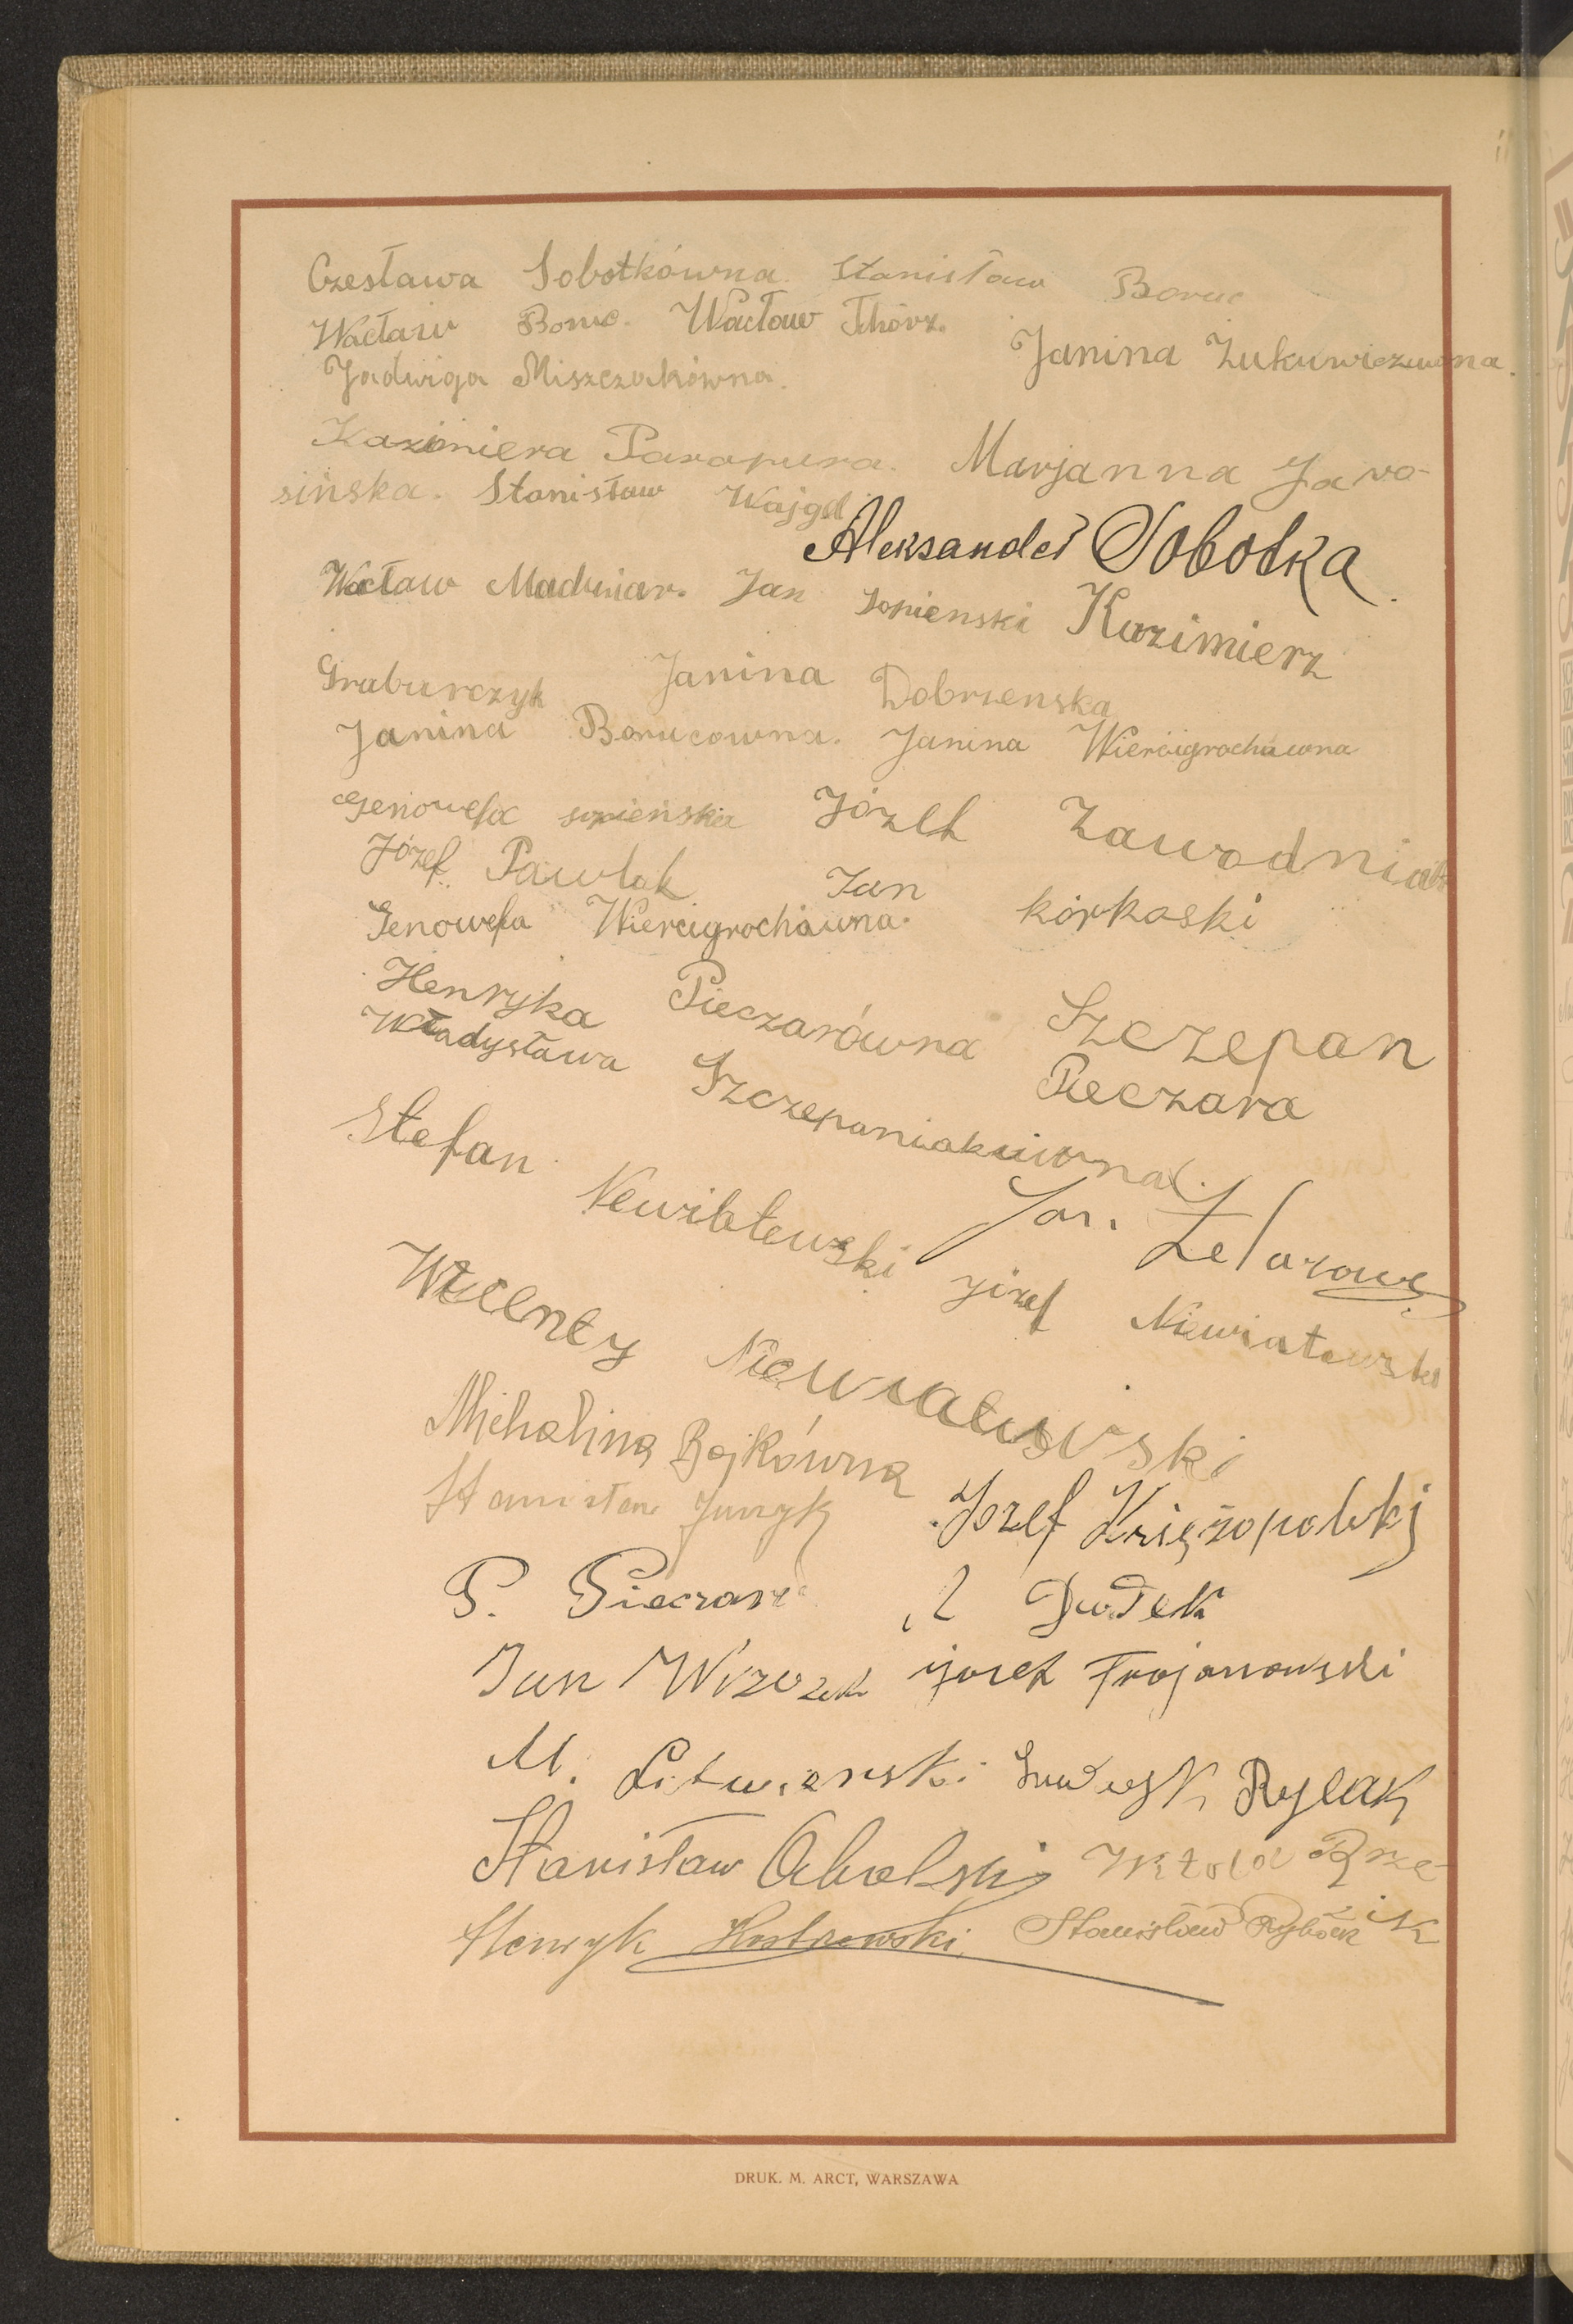 Czesława Sobotkówna. Stanisław Boruc
Wacław Boruc. Wacław Tchórz.
Janina Żukuwiczuwna.
Jadwiga Miszczakówna.
Kazimiera Parapura. Marjanna Jaro-
sińska. Stanisław Wajgel
Aleksander Sobotka.
Wacław Madwiar. Jan Sopienski Kazimierz
Graburczyk Janina Dobrzenska
Janina Borucowna. Janina Wiercigrochówna
Genowefa sopieńska Józef Zawodniak
Józef Pawlak Jan korkoski
Genowefa Wiercigrochówna.
Henryka Pieczarówna Szczepan
Pieczara
Władysława Szczepaniakuwna.
Stefan Newiatewski Jan Żelazowski
józef Niewiatowski
Wicenty Niewiatowski
Michalina Bojkówna
Stanisław Juszyk Jozef Księżopolski
P. Pieczara Dudek
Jan Wrzosek jozef Trojanowski
M. Litwinski Ludwyk Rylak
Stanisław Abolski Witold Brze-
zik
Henryk Kostrzewski Stanisław Rybak
DRUK. M. ARCT, WARSZAWA